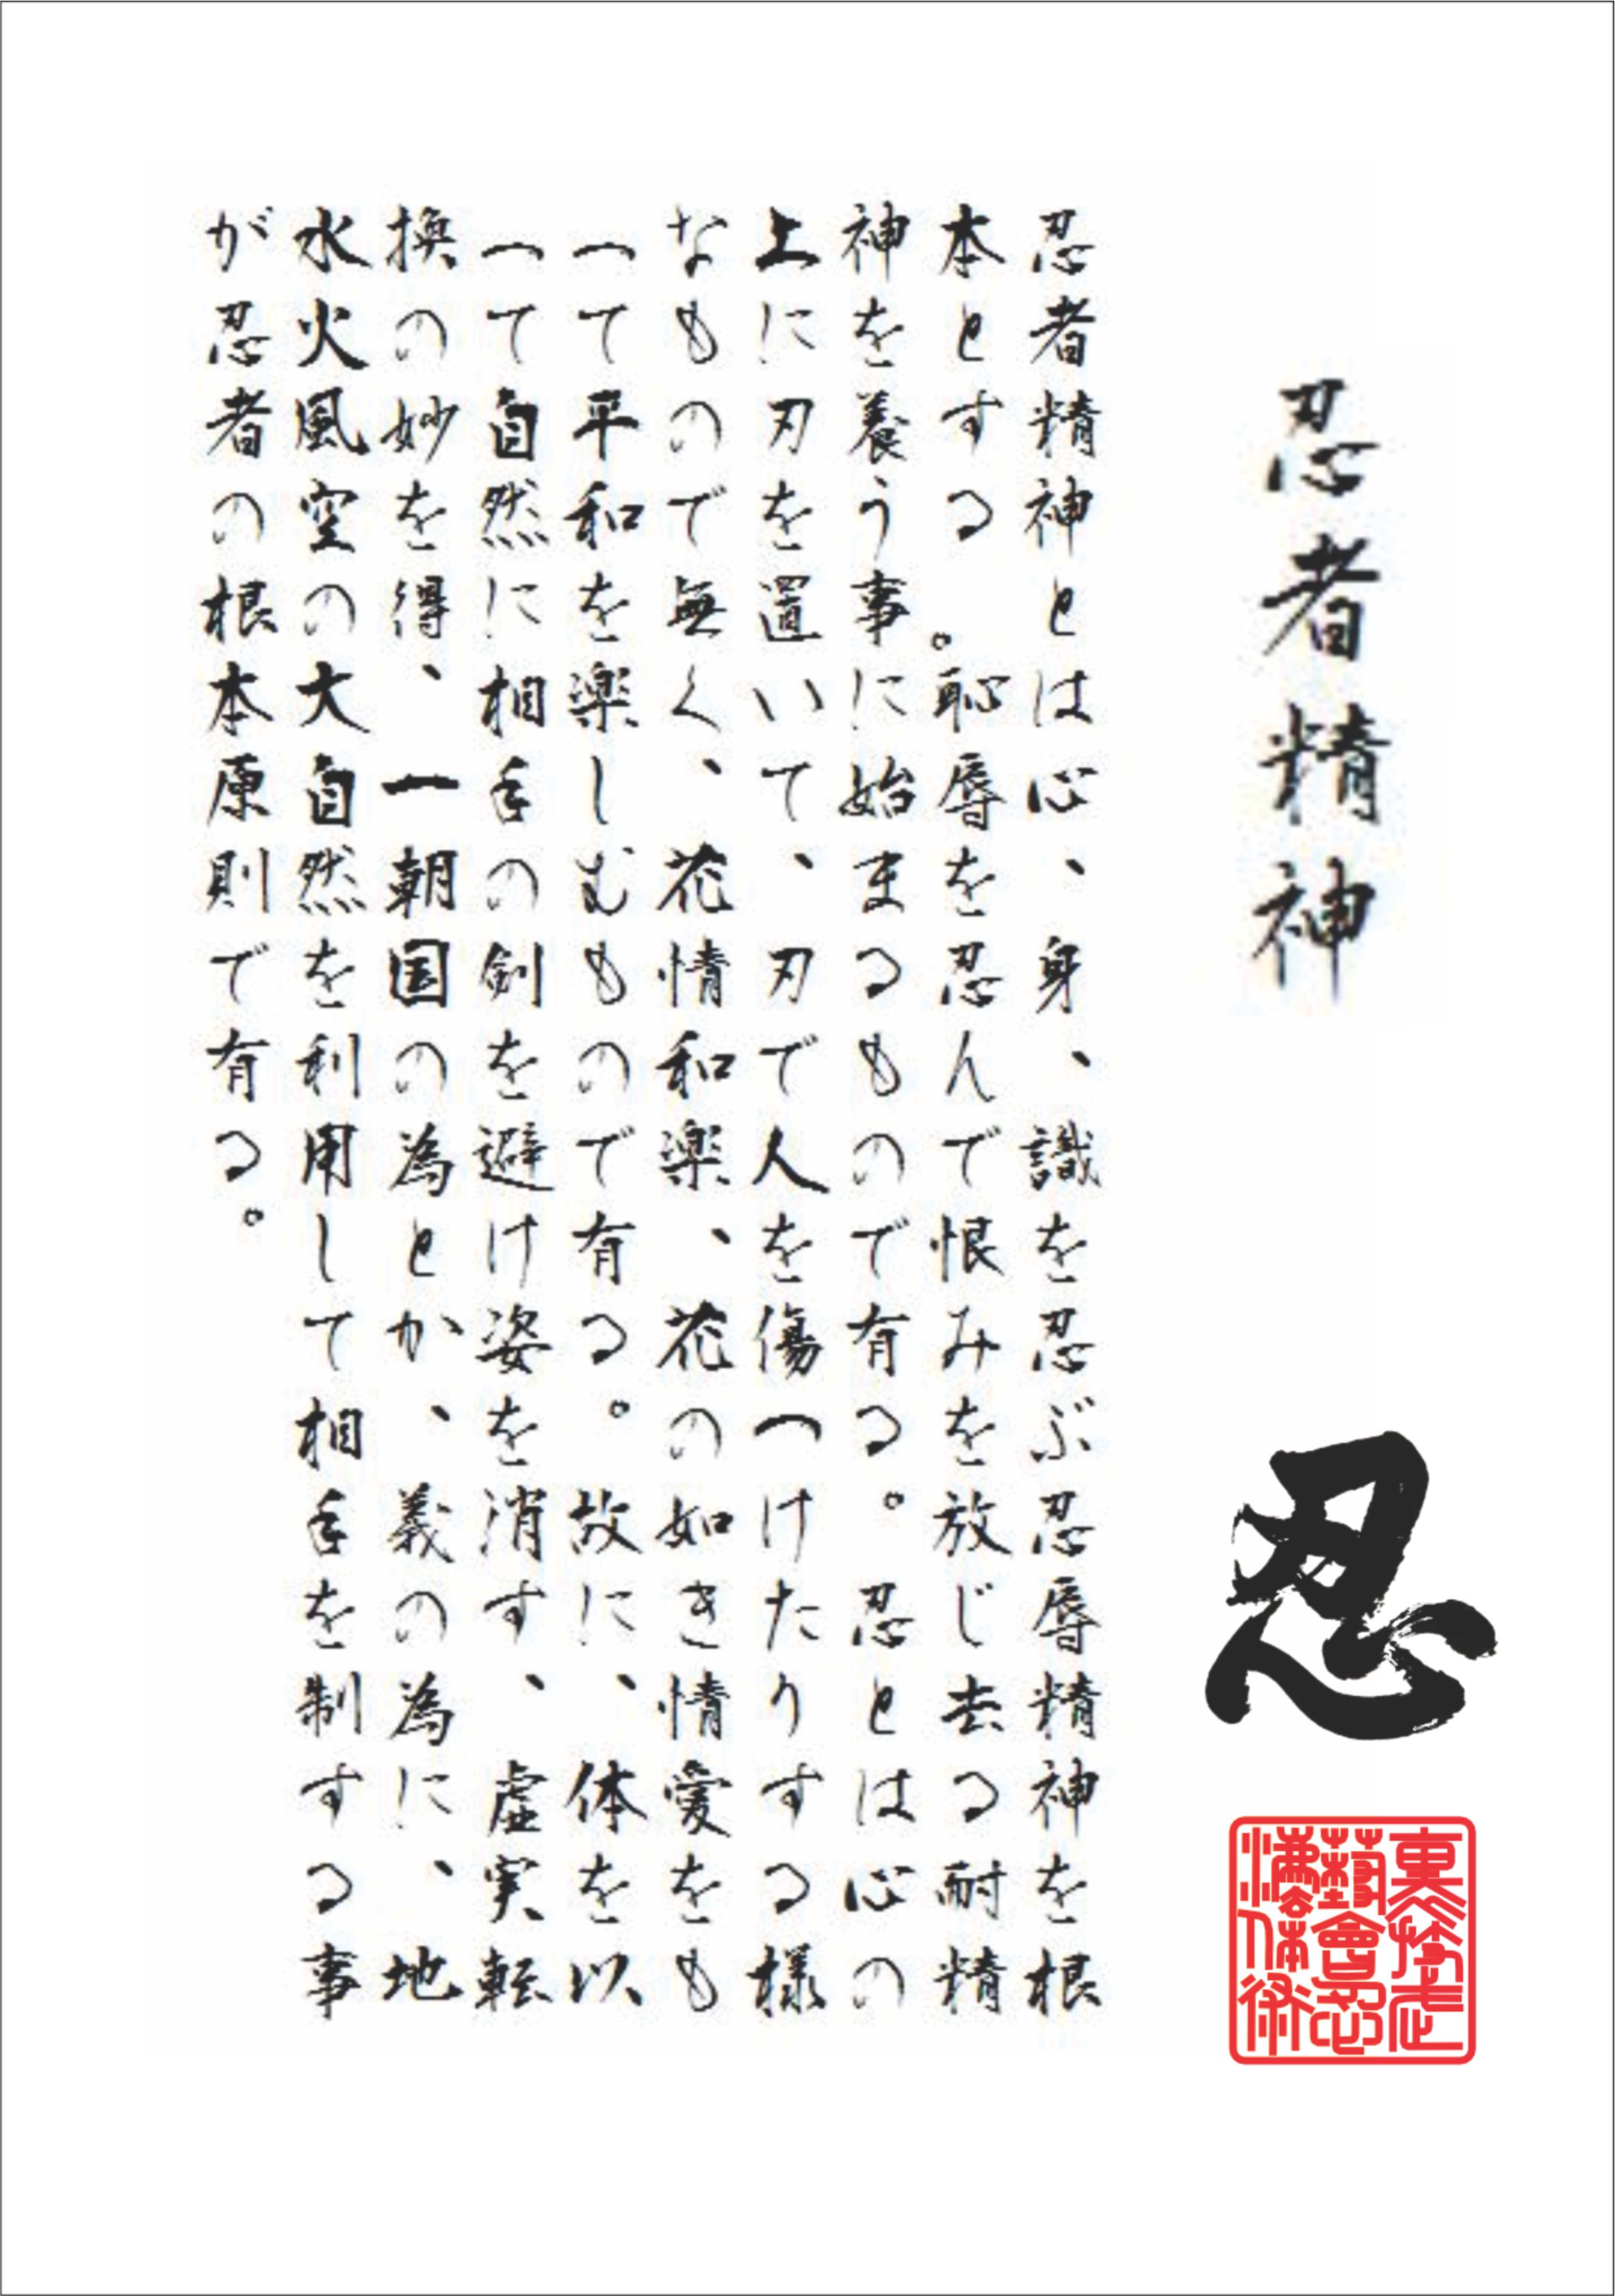 忍者精神
忍
忍者精神とは心、身、識を忍ぶ忍辱精神を根
本とする。恥辱を忍んで恨みを放じ去る耐精
神を養う事に始まるもので有る。忍とは心の
上に刃を置いて、刃で人を傷つけたりする様
なもので無く、花情和楽、花の如き情愛をも
つて平和を楽しむもので有る。故に、体を以
つて自然に相手の剣を避け姿を消す、虚実転
換の妙を得、一朝国の為とか、義の為に、地
水火風空の大自然を利用して相手を制する事
が忍者の根本原則で有る。